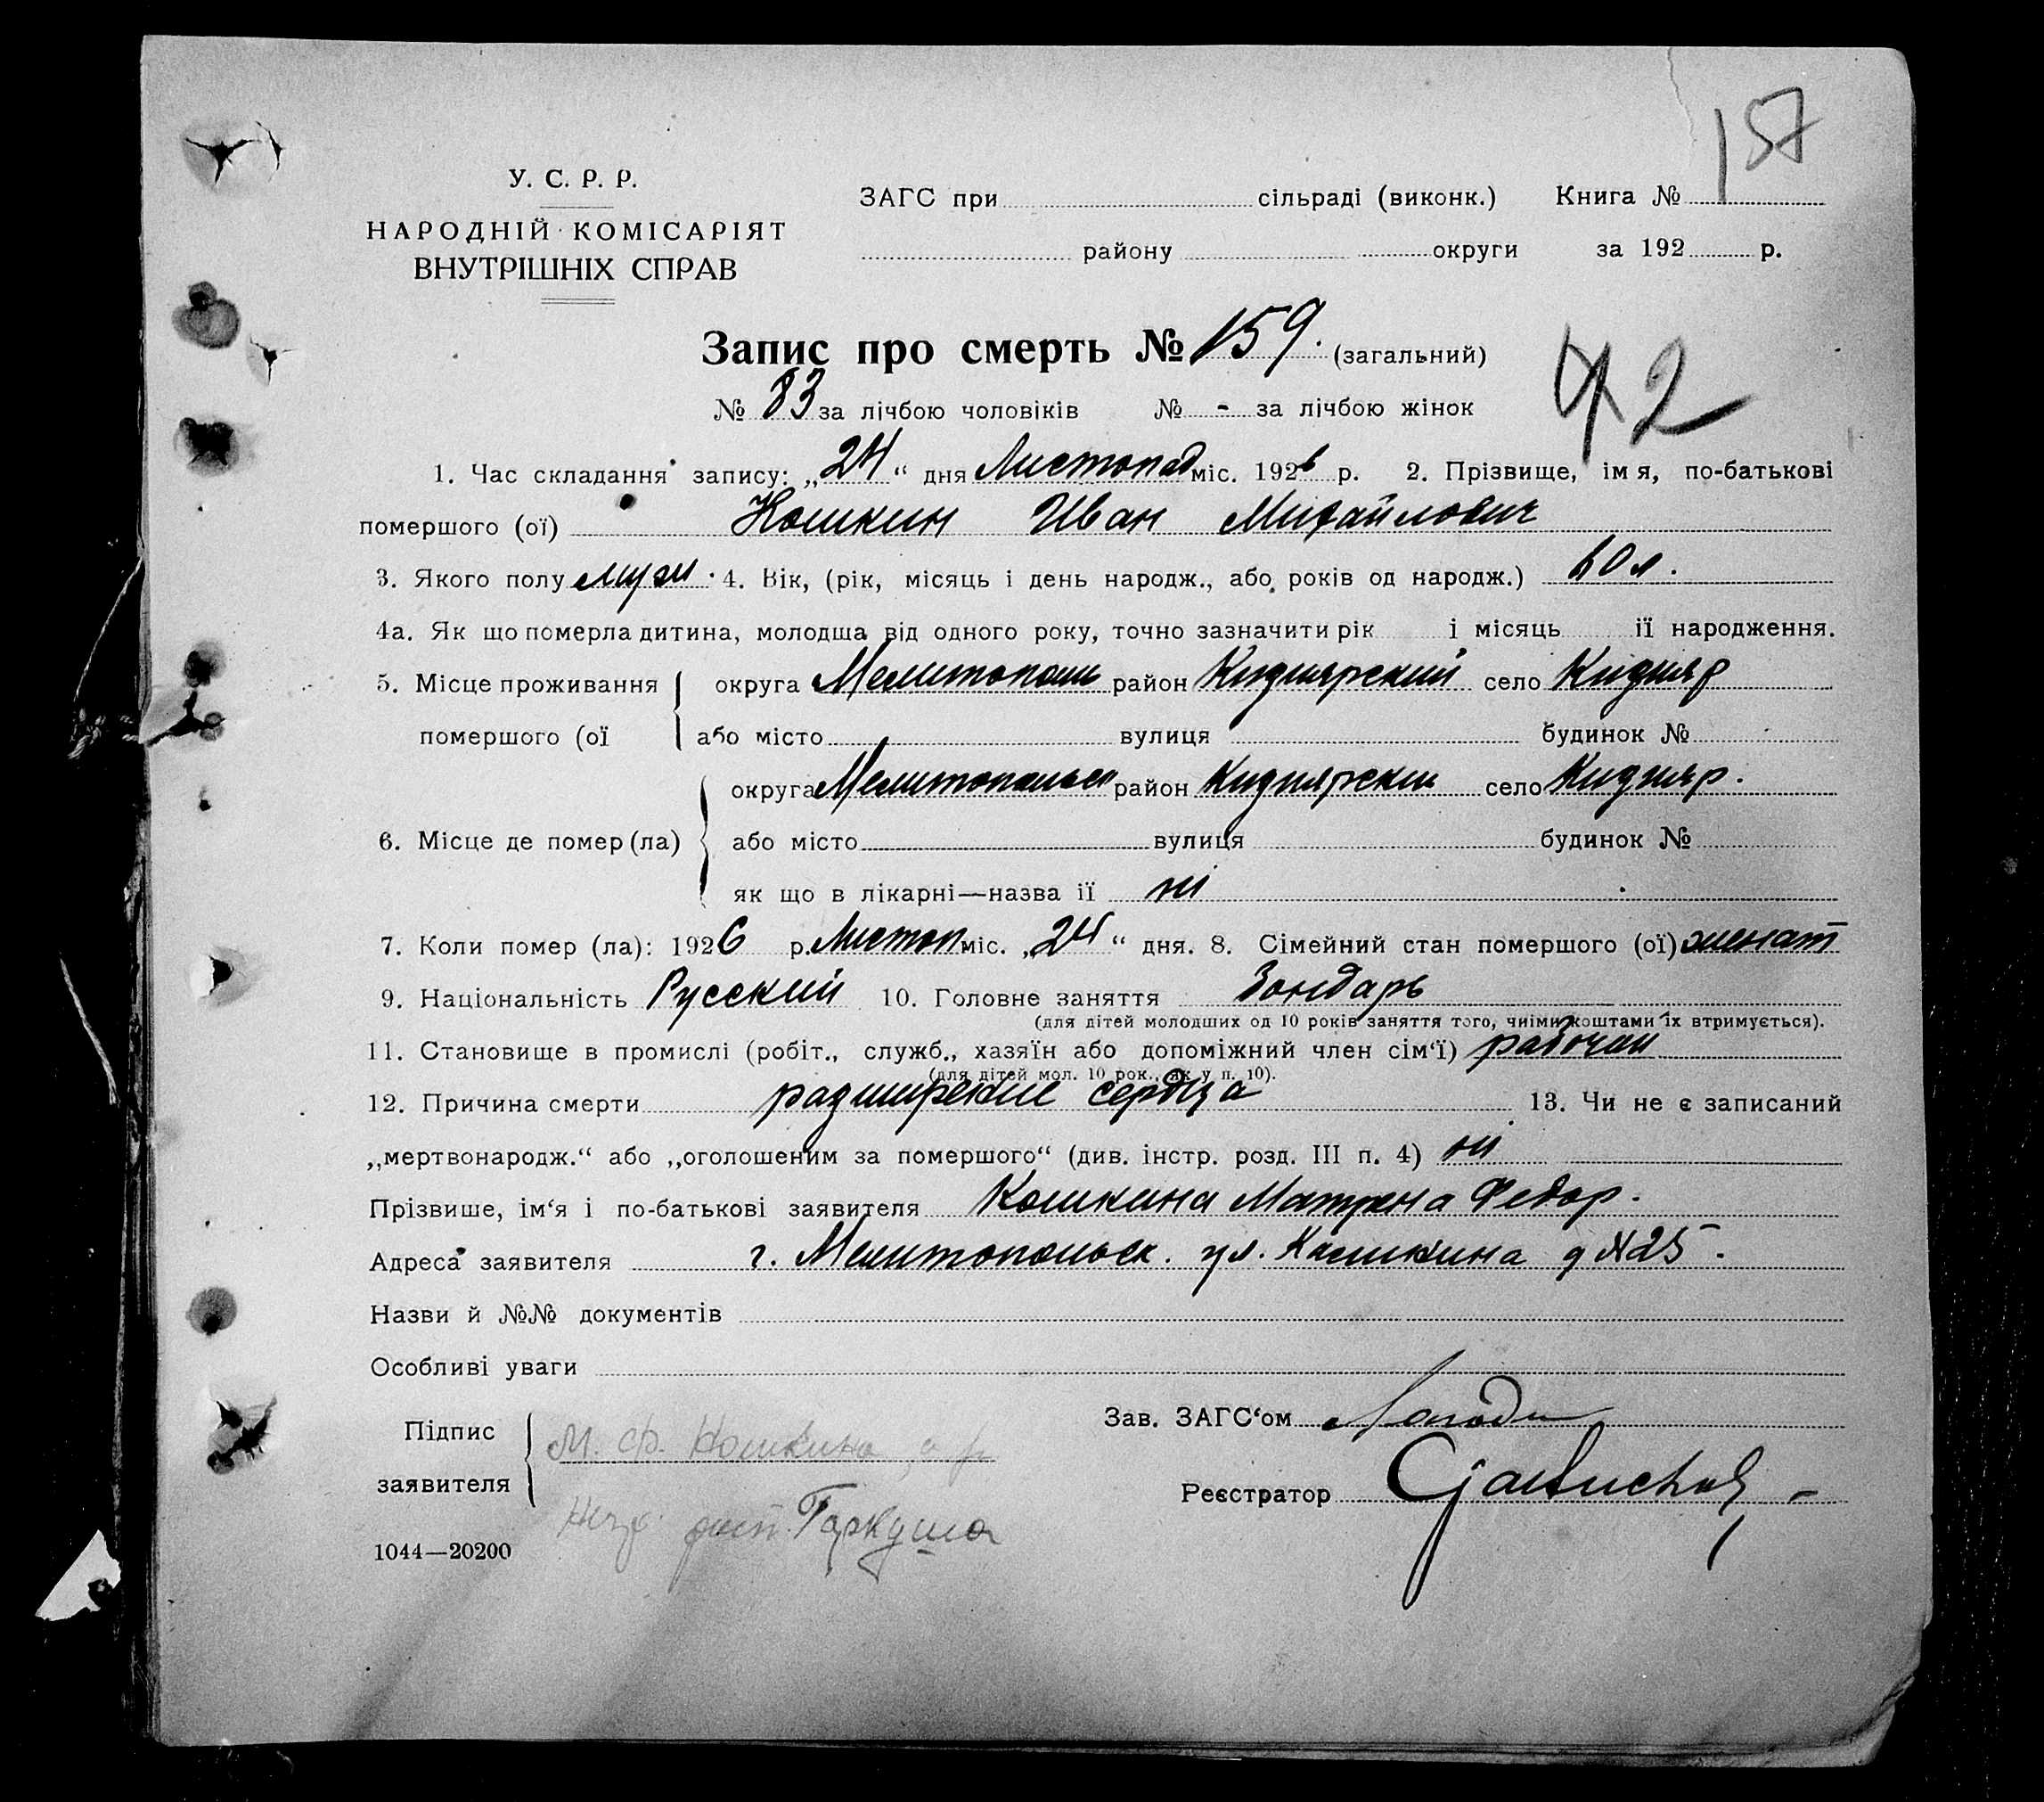 157
У. С. Р. Р.
НАРОДНІЙ КОМІСАРІЯТ
ВНУТРІШНІХ СПРАВ
ЗАГС при сільраді (виконк.) Книга №
району округи за 192 р.
Запис про смерть № 159. (загальний)
№ 83 за лічбою чоловіків № - за лічбою жінок
42
1. Час складання запису: „24“ дня Листопад міс. 1926 р. 2. Прізвище, імя, по-батькові
помершого (ої) Кошкин Иван Михайлович
3. Якого полу муж. 4. Вік, (рік, місяць і день народж., або років од народж.) 60 л.
4а. Як що померла дитина, молодша від одного року, точно зазначити рік і місяць її народження.
5. Місце проживання округа Мелитополь район Кизиярский село Кизияр
помершого (ої або місто вулиця будинок №
округа Мелитопольск район Кизиярский село Кизияр.
6. Місце де помер (ла) або місто вулиця будинок №
як що в лікарні—назва її ні
7. Коли помер (ла): 1926 р. Листоп міс. „24“ дня. 8. Сімейний стан помершого (ої) женат
9. Національність Русский 10. Головне заняття Бондарь
(для дітей молодших од 10 років заняття того, чиїми коштами їх втримується).
11. Становище в промислі (робіт., служб., хазяїн або допоміжний член сім‘ї) рабочий
(для дітей мол. 10 рок., як у п. 10).
12. Причина смерти разширение сердца 13. Чи не є записаний
„мертвонародж.“ або „оголошеним за помершого“ (див. інстр. розд. III п. 4) ні
Прізвише, ім‘я і по-батькові заявителя Кошкина Матрена Федор.
Адреса заявителя г. Мелитопольск. ул. Кашкина д № 25.
Назви й №№ документів
Особливі уваги
Підпис
заявителя
М. Ф. Кошкина
Гаркуша
Зав. ЗАГС‘ом
Реєстратор
1044—20200